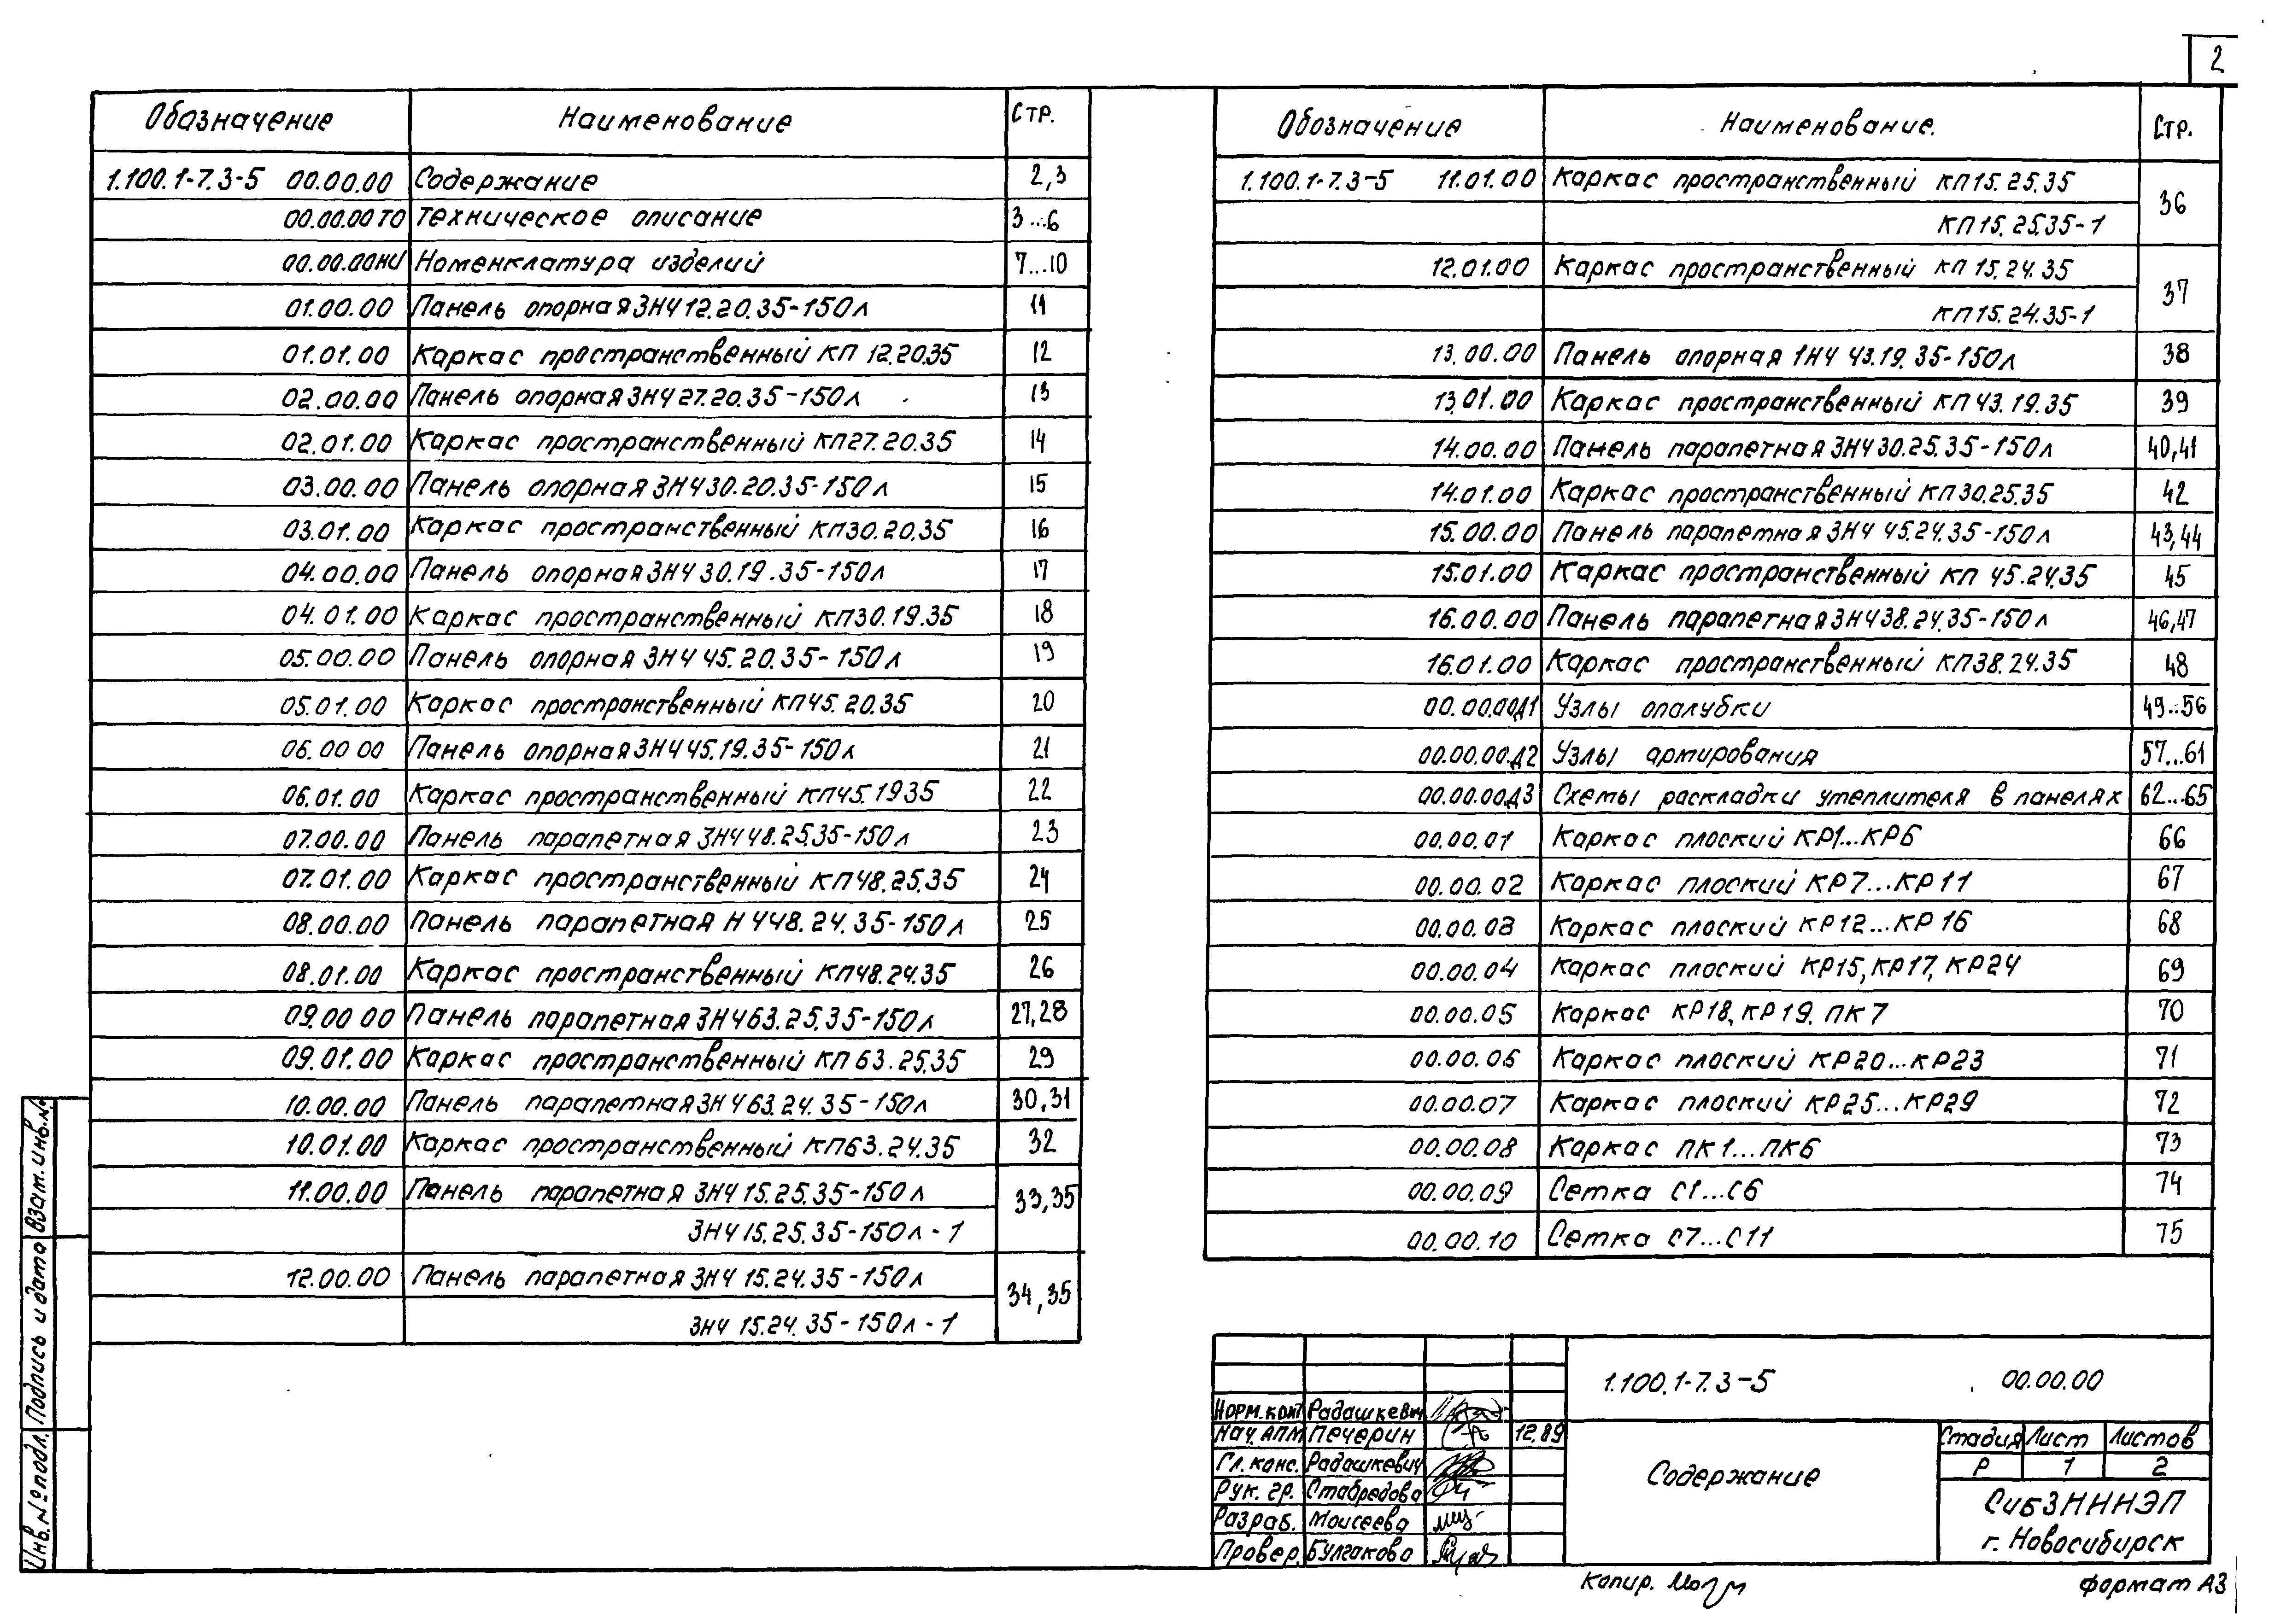 2
Обозначение Наименование Стр.
1.100.1-7.3-5 00.00.00 Содержание 2,3
00.00.00ТО Техническое описание 3...6
00.00.00НИ Номенклатура изделий 7...10
01.00.00 Панель опорная 3НЧ 12.20.35-150л 11
01.01.00 Каркас пространственный КП 12.20.35 12
02.00.00 Панель опорная 3НЧ 27.20.35-150л 13
02.01.00 Каркас пространственный КП27.20.35 14
03.00.00 Панель опорная 3НЧ 30.20.35-150л 15
03.01.00 Каркас пространственный КП30.20.35 16
04.00.00 Панель опорная 3НЧ 30.19.35-150л 17
04.01.00 Каркас пространственный КП30.19.35 18
05.00.00 Панель опорная 3НЧ 45.20.35-150л 19
05.01.00 Каркас пространственный КП45.20.35 20
06.00 00 Панель опорная 3НЧ 45.19.35-150л 21
06.01.00 Каркас пространственный КП45.1935 22
07.00.00 Панель парапетная 3НЧ 48.25.35-150л 23
07.01.00 Каркас пространственный КП48.25.35 24
08.00.00 Панель парапетная НЧ48.24.35-150л 25
08.01.00 Каркас пространственный КП48.24.35 26
09.00 00 Панель парапетная 3НЧ63.25.35-150л 27,28
09.01.00 Каркас пространственный КП 63.25.35 29
10.00.00 Панель парапетная 3НЧ63.24.35-150л 30,31
10.01.00 Каркас пространственный КП63.24.35 32
11.00.00 Панель парапетная 3НЧ 15.25.35-150л 33,35
3НЧ 15.25.35-150л-1
12.00.00 Панель парапетная 3НЧ 15.24.35-150л 34,35
3НЧ 15.24.35-150л-1
Обозначение Наименование. Стр.
1.100.1-7.3-5 11.01.00 Каркас пространственный КП15.25.35 36
КП15.25.35-1
12.01.00 Каркас пространственный КП 15.24.35 37
КП15.24.35-1
13.00.00 Панель опорная 1НЧ 43.19.35-150л 38
13.01.00 Каркас пространственный КП43.19.35 39
14.00.00 Панель парапетная 3НЧ 30.25.35-150л 40,41
14.01.00 Каркас пространственный КП30.25.35 42
15.00.00 Панель парапетная 3НЧ 45.24.35-150л 43,44
15.01.00 Каркас пространственный КП 45.24.35 45
16.00.00 Панель парапетная 3НЧ38.24.35-150л 46,47
16.01.00 Каркас пространственный КП38.24.35 48
00.00.00Д1 Узлы опалубки 49...56
00.00.00.Д2 Узлы армирования 57...61
00.00.00Д3 Схемы раскладки утеплителя в панелях 62...65
00.00.01 Каркас плоский КР1...КР6 66
00.00.02 Каркас плоский КР7...КР11 67
00.00.03 Каркас плоский КР12...КР16 68
00.00.04 Каркас плоский КР15, КР17, КР24 69
00.00.05 Каркас КР18, КР19. ПК7 70
00.00.06 Каркас плоский КР20...КР23 71
00.00.07 Каркас плоский КР25...КР29 72
00.00.08 Каркас ПК1...ПК6 73
00.00.09 Сетка С1...С6 74
00.00.10 Сетка С7...С11 75
Инв.№подл. Подпись и дата Взам.инв.№
Норм.конт Радашкевич
Нач.АПМ Печерин 12.89
Гл.конс. Радашкевич
Рук.гр. Стабредова
Разраб. Моисеева
Провер. Булгакова
1.100.1-7.3-5 00.00.00
Содержание
Стадия Лист Листов
Р 1 2
СибЗНИИЭП
г. Новосибирск
Копир.
формат А3